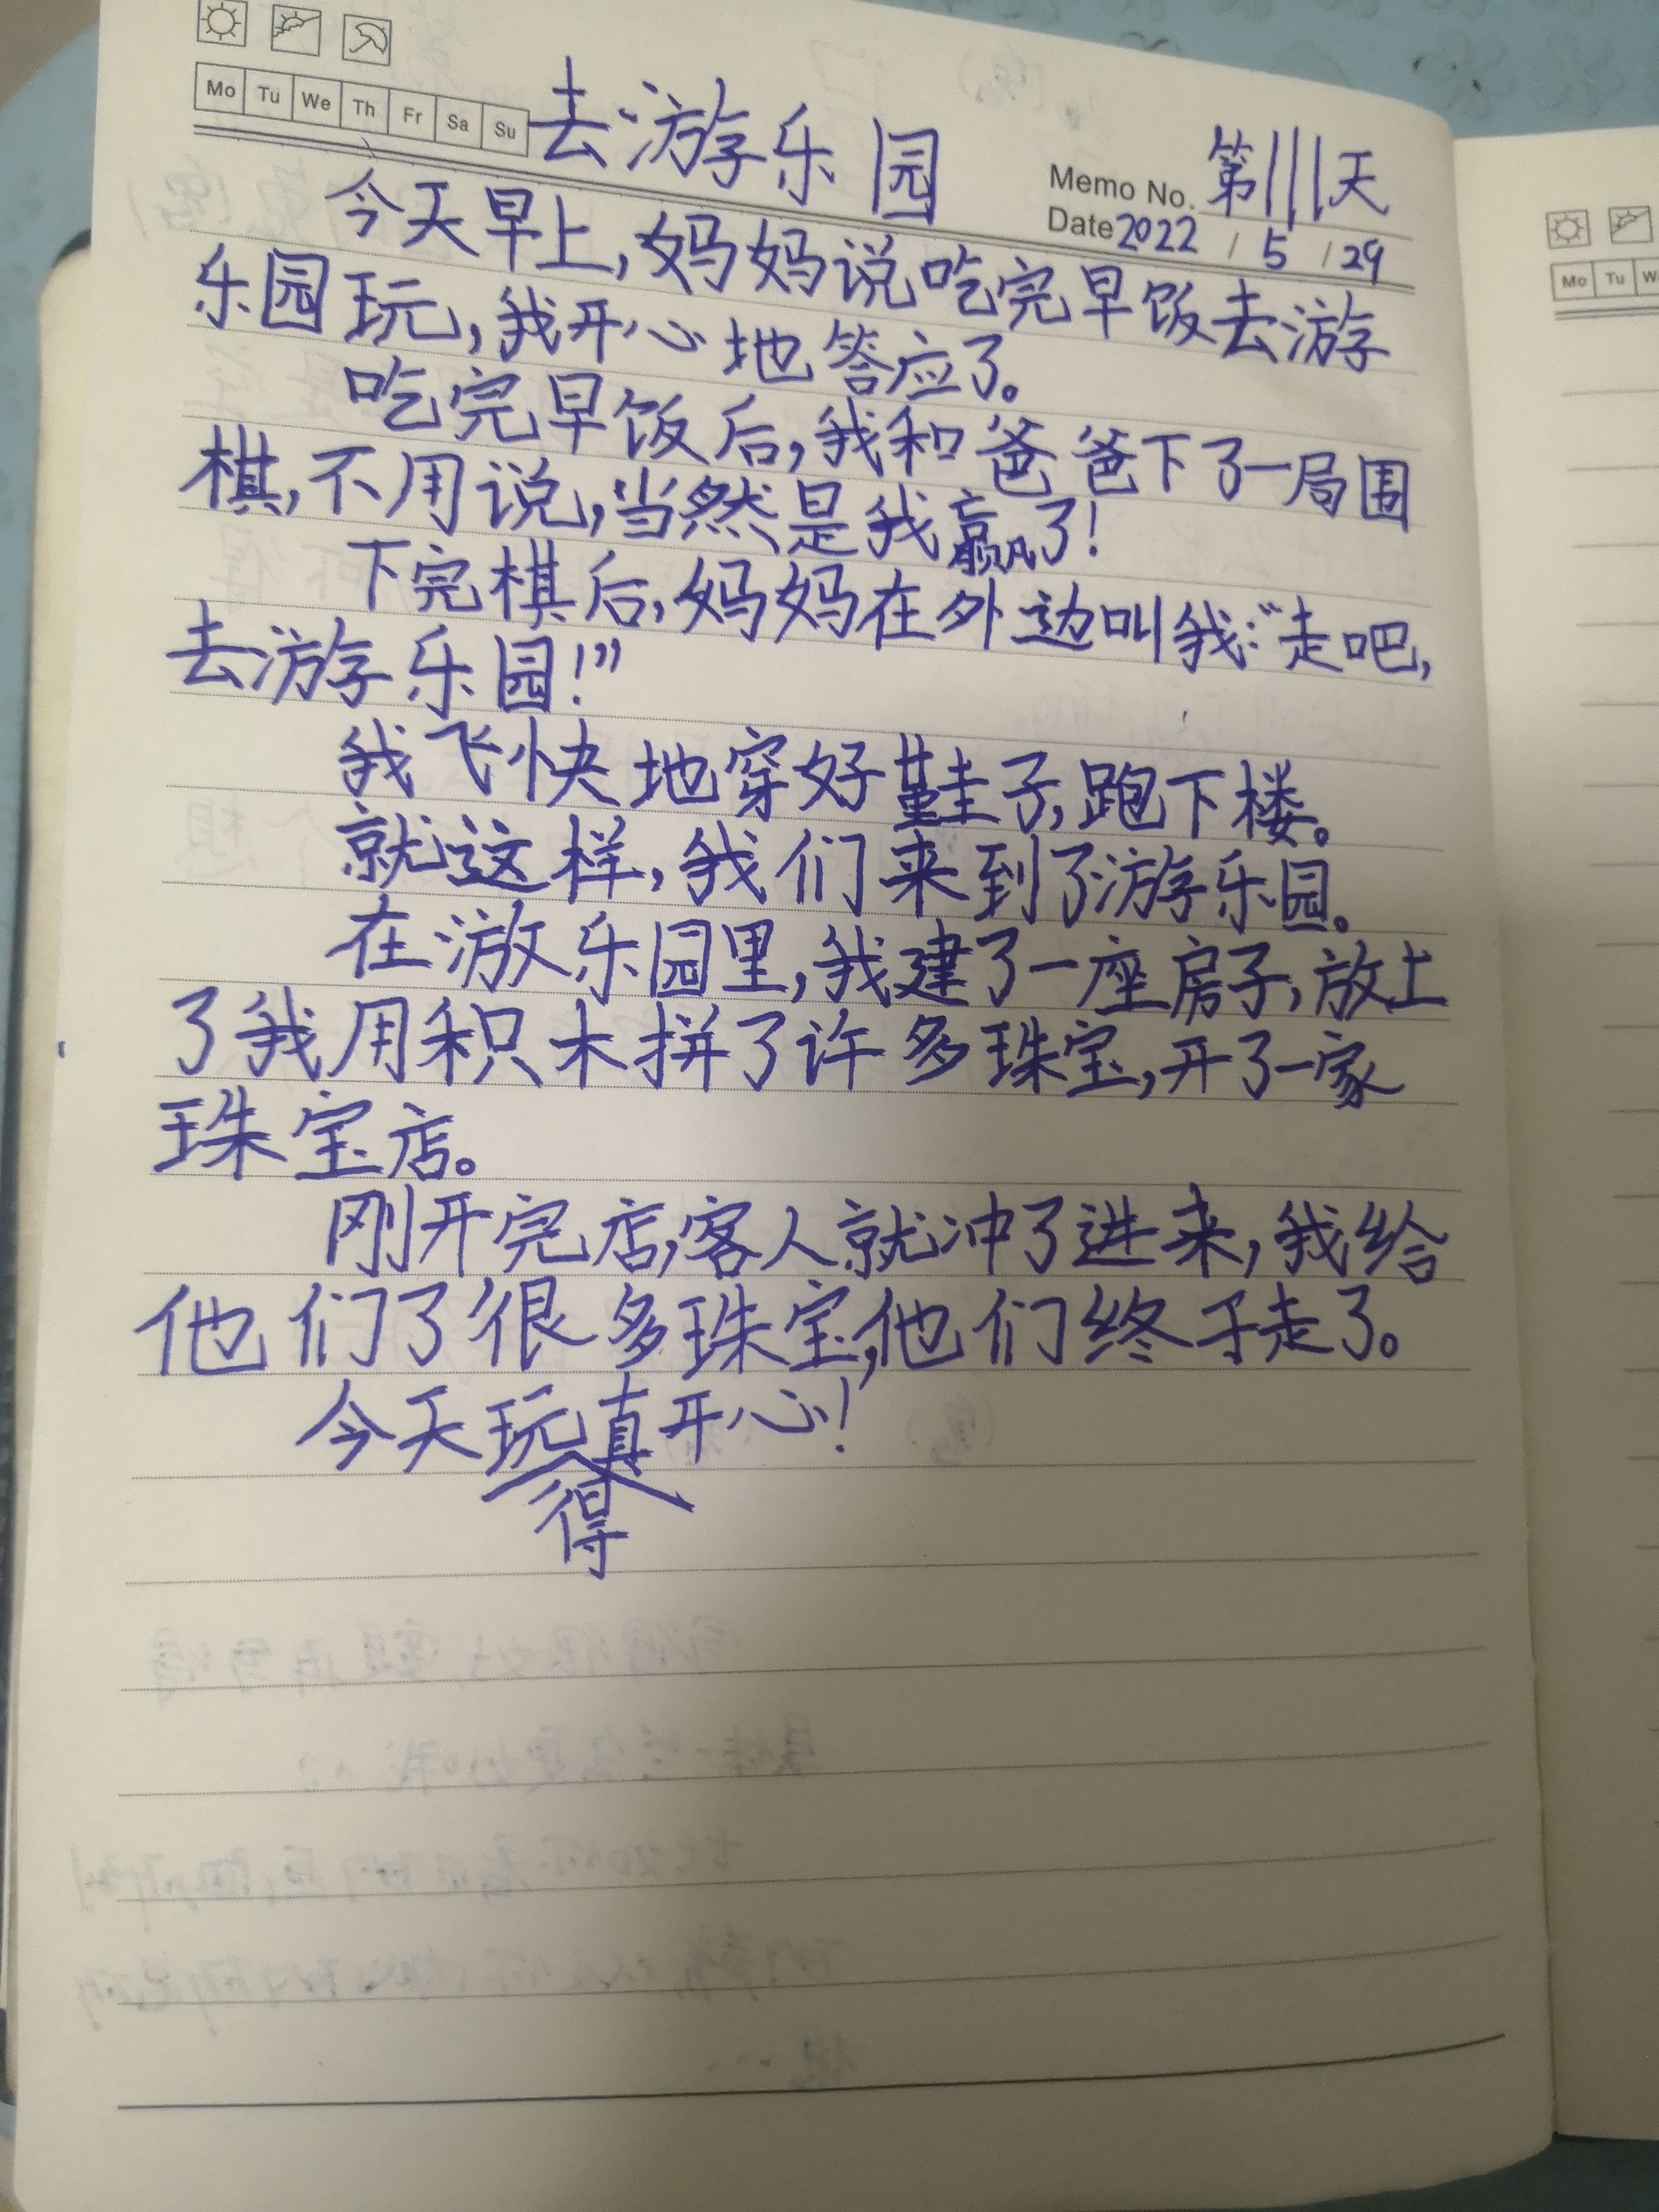 Mo Tu We Th Fr Sa Su
去游乐园
Memo No. 第111天
Date 2022 / 5 / 29
今天早上,妈妈说吃完早饭去游
乐园玩,我开心地答应了。
吃完早饭后,我和爸爸下了一局围
棋,不用说,当然是我赢了!
下完棋后,妈妈在外边叫我:“走吧,
去游乐园!”
我飞快地穿好鞋子,跑下楼。
就这样,我们来到了游乐园。
在游乐园里,我建了一座房子,放上
了我用积木拼了许多珠宝,开了一家
珠宝店。
刚开完店,客人就冲了进来,我给
他们了很多珠宝,他们终于走了。
今天玩得真开心!
Mo Tu W